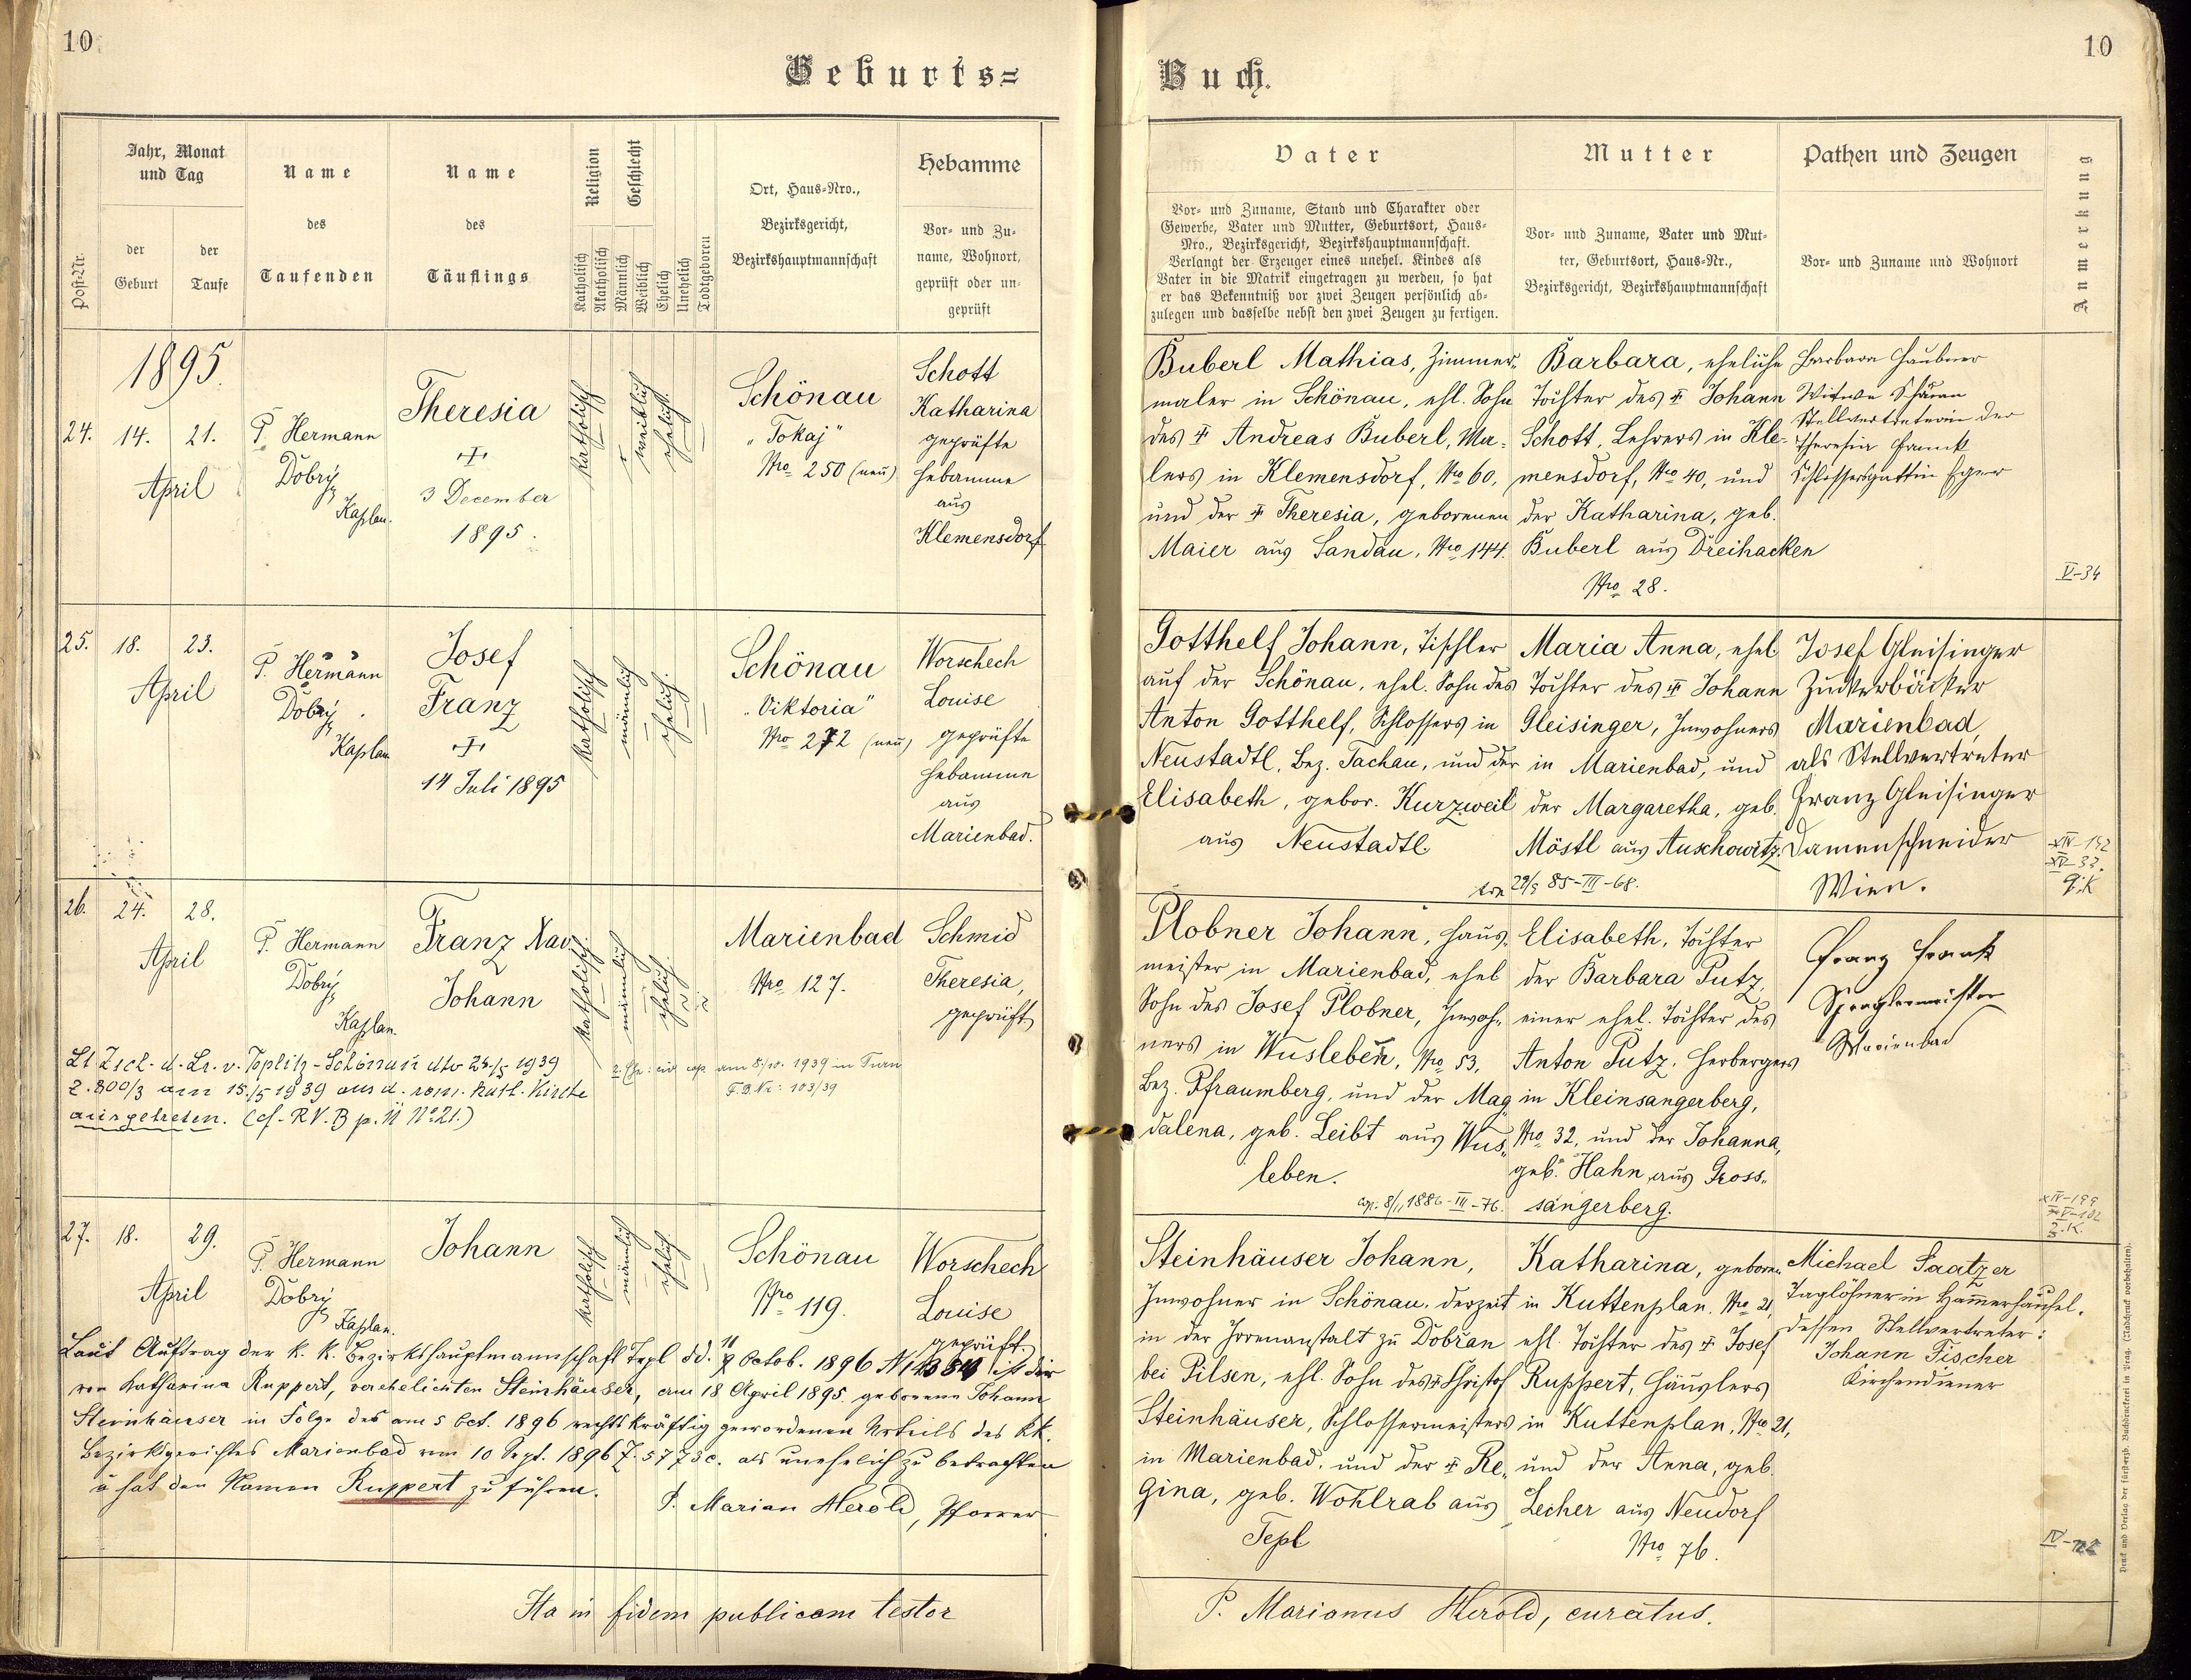 10
10
Geburts=
Buch.
Post-Nr.
Jahr, Monat
und Tag
der
Geburt
der
Taufe
Name
des
Taufenden
Name
des
Täuflings
Religion
Katholisch
Akatholisch
Geschlecht
Männlich
Weiblich
Ehelich
Unehelich
Todtgeboren
Ort, Haus-Nro.,
Bezirksgericht,
Bezirkshauptmannschaft
Hebamme
Vor- und Zu-
name, Wohnort,
geprüft oder un-
geprüft
Vater
Vor- und Zuname, Stand und Charakter oder
Gewerbe, Vater und Mutter, Geburtsort, Haus-
Nro., Bezirksgericht, Bezirkshauptmannschaft.
Verlangt der Erzeuger eines unehel. Kindes als
Vater in die Matrik eingetragen zu werden, so hat
er das Bekenntniß vor zwei Zeugen persönlich ab-
zulegen und dasselbe nebst den zwei Zeugen zu fertigen.
Mutter
Vor- und Zuname, Vater und Mut-
ter, Geburtsort, Haus-Nr.,
Bezirksgericht, Bezirkshauptmannschaft
Pathen und Zeugen
Vor- und Zuname und Wohnort
Anmerkung
1895.
24.
14.
21.
April
P. Hermann
Dobrý
Kaplan.
Theresia
+
3 December
1895.
katholisch
weiblich
ehelich
Schönau
"Tokaj"
Nro 250 (neu)
Schott
Katharina
geprüfte
Hebamme
aus
Klemensdorf
Buberl Mathias, Zimmer-
maler in Schönau, ehl. Sohn
des + Andreas Buberl, Ma-
lers in Klemensdorf, Nro 60,
und der + Theresia, geborenen
Maier aus Sandau, Nro 144.
Barbara, eheliche
Tochter des + Johann
Schott, Lehrers in Kle-
mensdorf, Nro 40, und
der Katharina, geb.
Buberl aus Dreihacken
Nro 28.
Barbara Haubner
Witwe
Stellvertreterin der
Theresia Franck
Schlossersgattin Eger
V-34
25.
18.
23.
April
P. Hermann
Dobrý
Kaplan
Josef
Franz
+
14 Juli 1895
katholisch
männlich
ehelich.
Schönau
"Viktoria"
Nro 272 (neu)
Worschech
Louise
geprüfte
Hebamme
aus
Marienbad.
Gotthelf Johann, Tischler
auf der Schönau, ehel. Sohn des
Anton Gotthelf, Schlossers in
Neustadtl, Bez. Tachau, und der
Elisabeth, gebor. Kurzweil
aus Neustadtl
Maria Anna, ehel
Tochter des + Johann
Gleisinger, Inwohners
in Marienbad, und
der Margaretha, geb.
Möstl aus Auschowitz.
29/5 85-III-68.
Josef Gleisinger
Zuckerbäcker
Marienbad,
als Stellvertreter
Franz Gleisinger
Damenschneider
Wien.
26.
24.
28.
April
P. Hermann
Dobrý
Kaplan.
Franz Xav.
Johann
katholisch
männlich
ehelich.
Marienbad
Nro 127.
Schmid
Theresia,
geprüft
Plobner Johann, Haus-
meister in Marienbad, ehel
Sohn des Josef Plobner, Inwoh-
ners in Wusleben, Nro 53,
Bez. Pfraumberg, und der Mag-
dalena, geb. Leibt aus Wus-
leben.
cop. 8/11 1886-III-76.
Elisabeth, Tochter
der Barbara Putz,
einer ehel. Tochter des
Anton Putz, Herbergers
in Kleinsangerberg,
Nro 32, und der Johanna,
geb. Hahn, aus Gross-
sangerberg.
Franz Frank
Spenglermeister
Marienbad
Lt. Zscl. d. Lr. v. Teplitz-Schönau dto 24/5 1939
Z. 800/3 am 15./5 1939 aus d. röm. kath. Kirche
ausgetreten. (cf. RV. B p. 11 No 21.)
am 8/10. 1939 in Turn
F.B.Nr: 103/39
27.
18.
29.
April
P. Hermann
Dobrý
Kaplan.
Johann
katholisch
männlich
ehelich
Schönau
Nro 119.
Worschech
Louise
geprüft
Steinhäuser Johann,
Inwohner in Schönau, derzeit
in der Irrenanstalt zu Dobřan
bei Pilsen, ehl. Sohn des + Christof
Steinhäuser, Schlossermeisters
in Marienbad, und der + Re-
gina, geb. Wohlrab aus
Tepl
Katharina, geboren
in Kuttenplan, Nro 21,
ehl. Tochter des + Josef
Ruppert, Häuslers
in Kuttenplan, Nro 21,
und der Anna, geb.
Lecher aus Neudorf
Nro 76.
Michael Saatzer
Taglöhner in Hammerhäusel.
dessen Stellvertreter:
Johann Fischer
Kirchendiener
Laut Auftrag der k. k. Bezirkshauptmannschaft Tepl dd. Octob. 1896 ist der
von Katharina Ruppert, verehelichten Steinhäuser, am 18 April 1895 geborene Johann
Steinhäuser in Folge des am 5 Oct. 1896 rechtskräftig gewordenen Urteils des kk.
Bezirksgerichtes Marienbad vom 10 Sept. 1896 Z. 5773 c. als unehelich zu betrachten
u hat den Namen Ruppert zu führen.
P. Marian Herold, Pfarrer
Ita in fidem publicam testor
P. Marianus Herold, curatus.
Druck und Verlag der fürsterzb. Buchdruckerei in Prag. (Nachdruck vorbehalten).